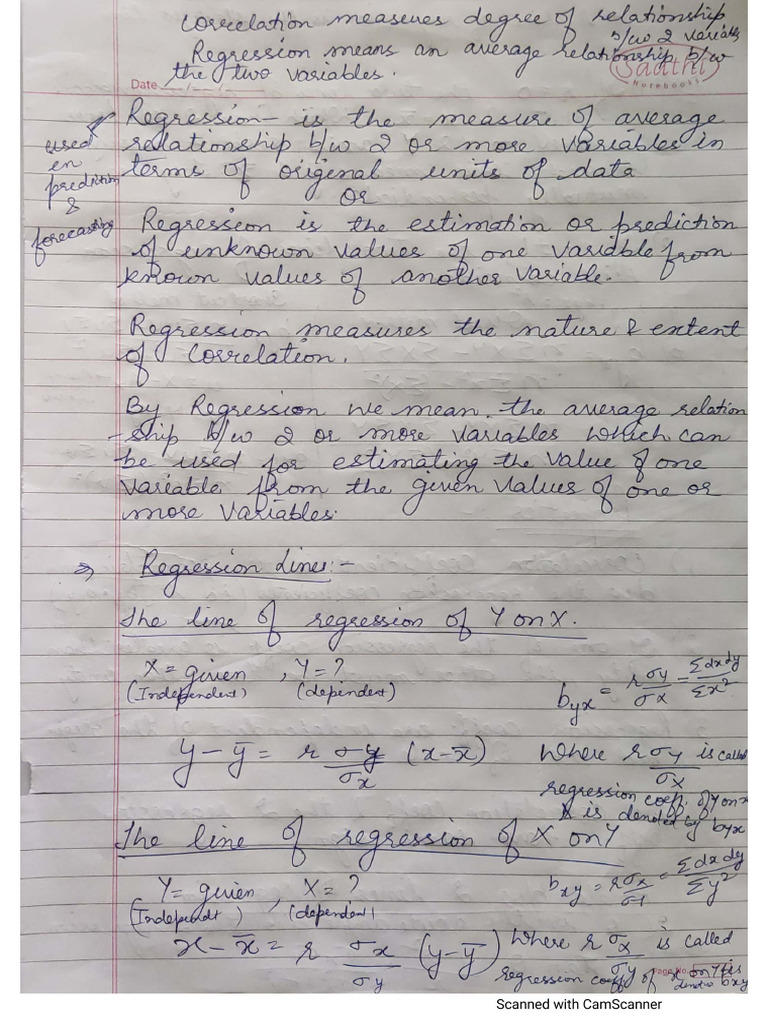 Correlation measures degree of relationship
b/w 2 variable
Regression means an average relationship b/w
the two variables.
Saathi
Notebooks
Date __/__/__
Regression - is the measure of average
relationship b/w 2 or more variables in
terms of original units of data
or
used
in
prediction
&
forecasting
Regression is the estimation or prediction
of unknown values of one variable from
known values of another variable.
Regression measures the nature & extent
of correlation.
By Regression we mean the average relation
-ship b/w 2 or more variables which can
be used for estimating the value of one
variable from the given values of one or
more variables.
⇒ Regression Lines:-
The line of regression of Y on X.
X = given , Y = ?
(Independent) (dependent)
b_yx = r σy/σx = Σdxdy/Σx²
y - ȳ = r σy/σx (x - x̄)
Where r σy/σx is called
regression coeff. of y on x
& is denoted by byx
The line of regression of X on Y
Y = given , X = ?
(Independt) (dependent)
b_xy = r σx/σy = Σdxdy/Σy²
x - x̄ = r σx/σy (y - ȳ)
Where r σx/σy is called
regression coeff of x on Y is
denoted bxy
Page No.
Scanned with CamScanner